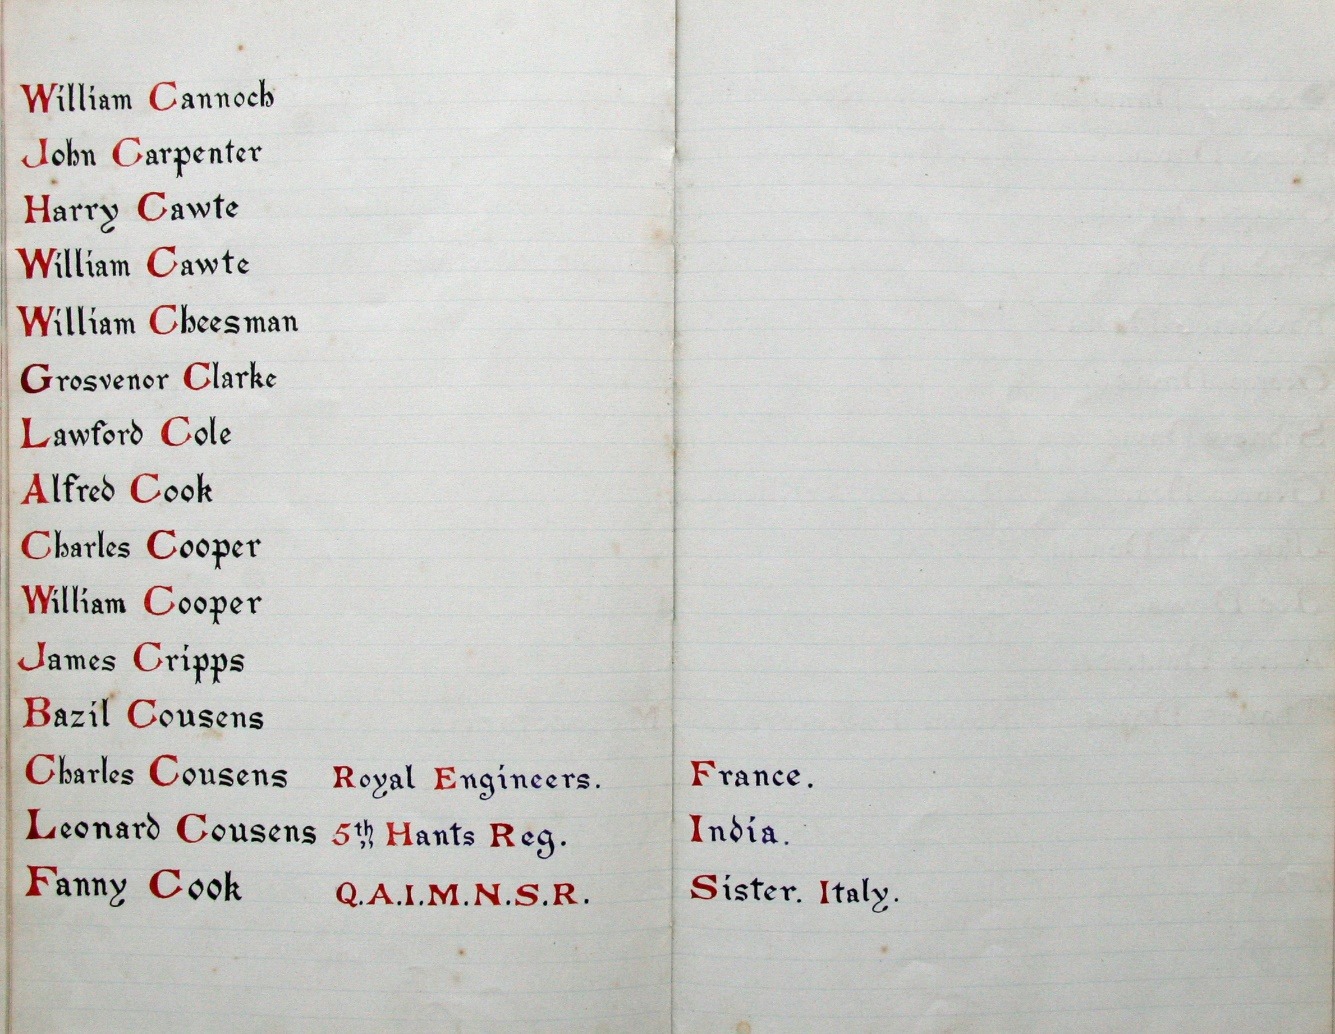 William Cannoch
John Carpenter
Harry Cawte
William Cawte
William Cheesman
Grosvenor Clarke
Lawford Cole
Alfred Cook
Charles Cooper
William Cooper
James Cripps
Bazil Cousens
Charles Cousens Royal Engineers. France.
Leonard Cousens 5th Hants Reg. India.
Fanny Cook Q.A.I.M.N.S.R. Sister. Italy.